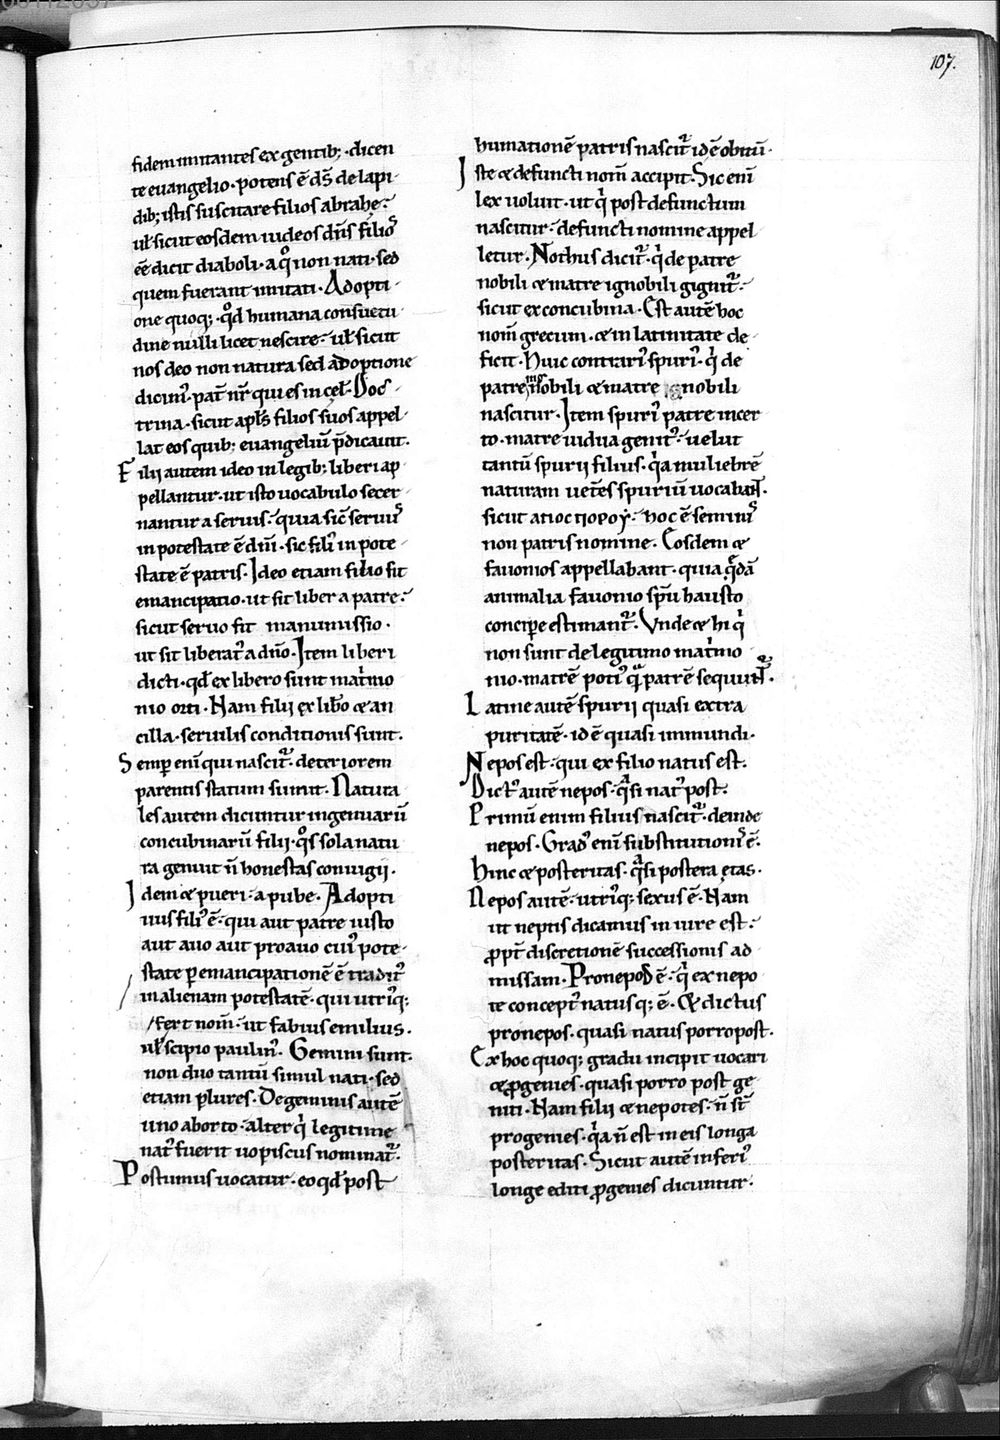 107.
fidem imitantes ex gentib; · dicen
te euangelio · potens ē dš de lapi
dib; istis suscitare filios abrahe ·
ul̄ sicut eosdem iudeos dn̄s filios
eē dicit diaboli · a quo non nati · sed
quem fuerant imitati · Adopti
one quoq; · qd humana consuetu
dine nulli licet nescire · ul̄ sicut
nos deo non natura sed adoptione
dicim᾿ · pat̄ nr̄ qui es in cel̄ · Doc
trina · sicut apl̄s filios suos appel
lat eos quib; euangeliū p̄dicauit ·
Filij autem ideo in legib; liberi ap
pellantur · ut isto uocabulo secer
nantur a seruis · quia sic̄ seruus
in potestate ē dn̄i · sic fili᾿ in pote
state ē patris · Ideo etiam filio fit
emancipatio · ut sit liber a patre ·
sicut seruo fit manumissio ·
ut sit liberat᾿ a dn̄o · Item liberi
dicti · qd̄ ex libero sunt mat̓mo
nio orti · Nam filij ex lib̄o & an
cilla · seruilis conditionis sunt ·
Semp̄ eni̅ qui nascit᾿ · deteriorem
parentis statum sumit · Natura
les autem dicuntur ingenuarū
concubinarū filij · q̊s sola natu
ra genuit n̄ honestas coniugij ·
Idem & pueri · a pube · Adopti
uus fili᾿ ē · qui aut patre iusto
aut auo aut proauo cui᾿ pote
state p emancipationē ē tradit᾿
in alienam potestatē · qui utri᾿q;
fert nom̄ · ut fabius emilius ·
ul̄ scipio paulin᾿ · Gemini sunt ·
non duo tantū simul nati · sed
etiam plures · De geminis autē
uno aborto · alter q̓ legitime
nat᾿ fuerit uopiscus nominat᾿ ·
Postumus uocatur · eo qd̄ post
humationē patris nascit᾿ id ē obitū ·
Iste & defuncti nom̄ accipit · Sic eni̅
lex uoluit · ut q̓ post defunctum
nascitur · defuncti nomine appel
letur · Nothus dicit᾿ · q̓ de patre
nobili & matre ignobili gignit᾿ ·
sicut ex concubina · Est autē hoc
nom̄ grecum · & in latinitate de
ficit · Huic contrari᾿ spuri᾿ · q̓ de
patre ignobili & matre nobili
nascitur · Item spuri᾿ patre incer
to · matre uidua genit᾿ · uelut
tantū spurij filius · q̓a muliebrē
naturam ueteres spuriū uocabant ·
sicut · hoc ē seminis
non patris nomine · Eosdem &
fauonios appellabant · quia quedā
animalia fauonio spū hausto
concipe estimant᾿ · Vnde & hi q̓
non sunt de legitimo mat̓mo
nio · matrē poti᾿ quam patrē sequunt᾿ ·
Latine autē spurij quasi extra
puritatē · id ē quasi immundi ·
Nepos est · qui ex filio natus est ·
Dict᾿ autē nepos · q̄si nat᾿ post ·
Primū enim filius nascit᾿ · deinde
nepos · Grad᾿ eni̅ substitutionis ē ·
Hinc & posteritas · q̄si postera ętas ·
Nepos autē · utri᾿q; sexus ē · Nam
ut neptis dicamus in iure est ·
ꝓpt̄ discretionē successionis ad
missam · Pronepos ē · q̓ ex nepo
te concept᾿ natusq; ē · Et dictus
pronepos · quasi natus porro post ·
Ex hoc quoq; gradu incipit uocari
& ꝓgenies · quasi porro post ge
niti · Nam filij & nepotes · n̄ st̄
progenies · q̓a n̄ est in eis longa
posteritas · Sicut autē inferi᾿
longe editi ꝓgenies dicuntur ·